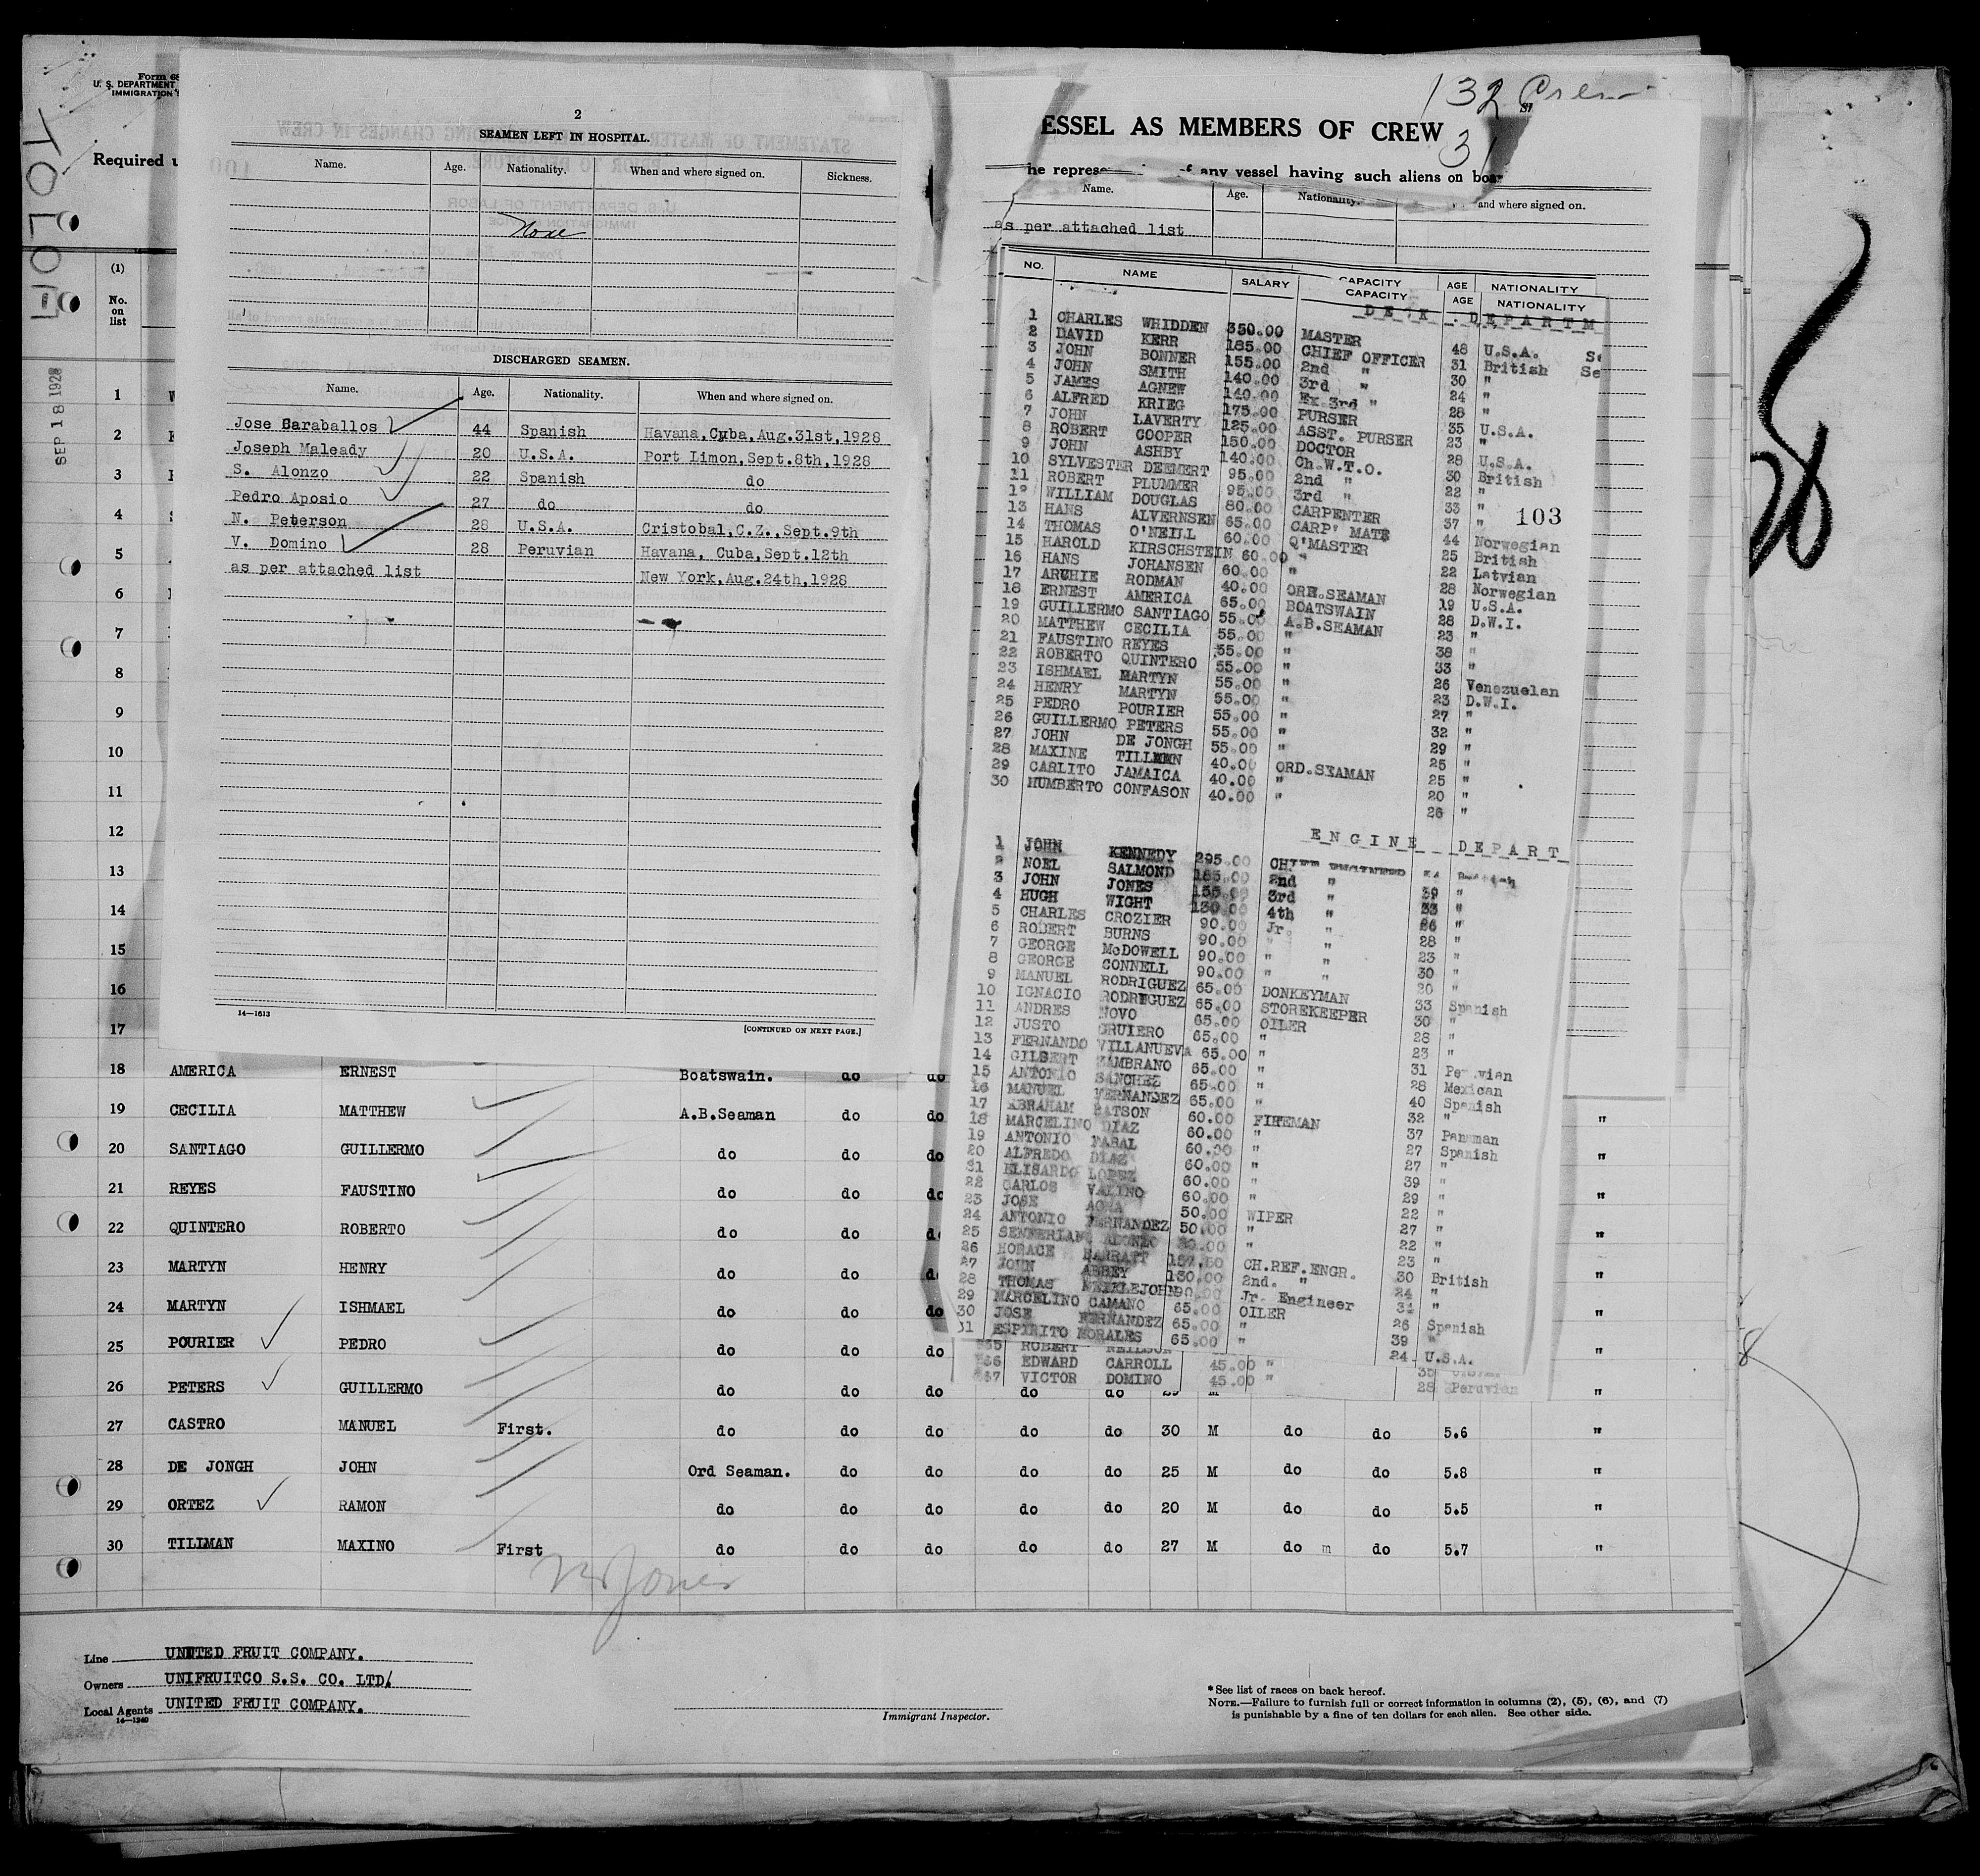 Form 68
U. S. DEPARTMENT
IMMIGRATION
TOLOA
Required u
(1)
No.
on
list
SEP 18 1928
1
2
3
4
5
6
7
8
9
10
11
12
13
14
15
16
17
2
SEAMEN LEFT IN HOSPITAL.
Name. Age. Nationality. When and where signed on. Sickness.
None
DISCHARGED SEAMEN.
Name. Age. Nationality. When and where signed on.
Jose Caraballos 44 Spanish Havana,Cuba,Aug.31st,1928
Joseph Maleady 20 U.S.A. Port Limon,Sept.8th,1928
S. Alonzo 22 Spanish do
Pedro Aposio 27 do do
N. Peterson 28 U.S.A. Cristobal,C.Z.,Sept.9th
V. Domino 28 Peruvian Havana, Cuba,Sept.12th
as per attached list New York,Aug.24th,1928
14—1613
[CONTINUED ON NEXT PAGE.]
132 Crew
31
ESSEL AS MEMBERS OF CREW
he represe any vessel having such aliens on boar
Name. Age. Nationality. and where signed on.
as per attached list
NO. NAME SALARY CAPACITY AGE NATIONALITY
CAPACITY AGE NATIONALITY
DECK DEPARTM
1 CHARLES WHIDDEN 350.00 MASTER 48 U.S.A.
2 DAVID KERR 185.00 CHIEF OFFICER 31 British
3 JOHN BONNER 155.00 2nd " 30 "
4 JOHN SMITH 140.00 3rd " 24 "
5 JAMES AGNEW 140.00 Ex 3rd " 28 "
6 ALFRED KRIEG 175.00 PURSER 35 U.S.A.
7 JOHN LAVERTY 125.00 ASST. PURSER 23 "
8 ROBERT COOPER 150.00 DOCTOR 28 U.S.A.
9 JOHN ASHBY 140.00 Ch.W.T.O. 30 British
10 SYLVESTER DEEMERT 95.00 2nd " 22 "
11 ROBERT PLUMMER 95.00 3rd " 33 "
12 WILLIAM DOUGLAS 80.00 CARPENTER 37 "
103
13 HANS ALVERNSEN 65.00 CARP' MATE 44 Norwegian
14 THOMAS O'NEILL 60.00 Q'MASTER 25 British
15 HAROLD KIRSCHSTEIN 60.00 " 22 Latvian
16 HANS JOHANSEN 60.00 " 28 Norwegian
17 ARCHIE RODMAN 40.00 ORD.SEAMAN 19 U.S.A.
18 ERNEST AMERICA 65.00 BOATSWAIN 28 D.W.I.
19 GUILLERMO SANTIAGO 55.00 A.B.SEAMAN 23 "
20 MATTHEW CECILIA 55.00 " 38 "
21 FAUSTINO REYES 55.00 " 33 "
22 ROBERTO QUINTERO 55.00 " 26 Venezuelan
23 ISHMAEL MARTYN 55.00 " 23 D.W.I.
24 HENRY MARTYN 55.00 " 27 "
25 PEDRO POURIER 55.00 " 32 "
26 GUILLERMO PETERS 55.00 " 29 "
27 JOHN DE JONGH 55.00 " 25 "
28 MAXINE TILLMAN 40.00 ORD.SEAMAN 25 "
29 CARLITO JAMAICA 40.00 " 20 "
30 HUMBERTO CONFASON 40.00 " 26 "
ENGINE DEPART
1 JOHN KENNEDY 295.00 CHIEF ENGINEER
2 NOEL SALMOND 185.00 2nd " 39 "
3 JOHN JONES 155.00 3rd " 33 "
4 HUGH WIGHT 130.00 4th " 26 "
5 CHARLES CROZIER 90.00 Jr. " 28 "
6 ROBERT BURNS 90.00 " " 23 "
7 GEORGE McDOWELL 90.00 " " 30 "
8 GEORGE CONNELL 90.00 " " 20 "
9 MANUEL RODRIGUEZ 65.00 DONKEYMAN 33 Spanish
10 IGNACIO RODRIGUEZ 65.00 STOREKEEPER 30 "
11 ANDRES NOVO 65.00 OILER 28 "
12 JUSTO CRUIERO 65.00 " 23 "
13 FERNANDO VILLANUEVA 65.00 " 31 Peruvian
14 GILBERT ZAMBRANO 65.00 " 28 Mexican
15 ANTONIO SANCHEZ 65.00 " 40 Spanish
16 MANUEL FERNANDEZ 65.00 " 32 "
17 ABRAHAM BATSON 60.00 FIREMAN 37 Panaman
18 MARCELINO DIAZ 60.00 " 27 Spanish
19 ANTONIO TABAL 60.00 " 27 "
20 ALFREDO DIAZ 60.00 " 39 "
21 ELISARDO LOPEZ 60.00 " 29 "
22 CARLOS VALINO 60.00 " 22 "
23 JOSE AGRA 50.00 WIPER 27 "
24 ANTONIO FERNANDEZ 50.00 " 22 "
25 ALONZO " 23 "
26 HORACE BARRATT CH.REF.ENGR. 30 British
27 JOHN ABBEY 130.00 2nd. " 24 "
28 THOMAS MEIKLEJOHN 90.00 Jr. Engineer 34 "
29 MARCELINO CAMANO 65.00 OILER 26 Spanish
30 JOSE FERNANDEZ 65.00 " 39 "
31 ESPIRITO MORALES 65.00 " 24 U.S.A.
ROBERT NEILSON
EDWARD CARROLL 45.00 " 35
VICTOR DOMINO 45.00 " 28 Peruvian
18 AMERICA ERNEST Boatswain. do do
19 CECILIA MATTHEW A.B.Seaman do do "
20 SANTIAGO GUILLERMO do do do "
21 REYES FAUSTINO do do do "
22 QUINTERO ROBERTO do do "
23 MARTYN HENRY do do "
24 MARTYN ISHMAEL do do do "
25 POURIER PEDRO do do do "
26 PETERS GUILLERMO do do do do do 29 M "
27 CASTRO MANUEL First. do do do do do 30 M do do 5.6 "
28 DE JONGH JOHN Ord Seaman. do do do do 25 M do do 5.8 "
29 ORTEZ RAMON do do do do do 20 M do do 5.5 "
30 TILLMAN MAXINO First do do do do do 27 M do m do 5.7 "
Jones
Line UNITED FRUIT COMPANY.
Owners UNIFRUITCO S.S. CO. LTD/
Local Agents UNITED FRUIT COMPANY.
14—1240
Immigrant Inspector.
* See list of races on back hereof.
NOTE.—Failure to furnish full or correct information in columns (2), (5), (6), and (7)
is punishable by a fine of ten dollars for each alien. See other side.